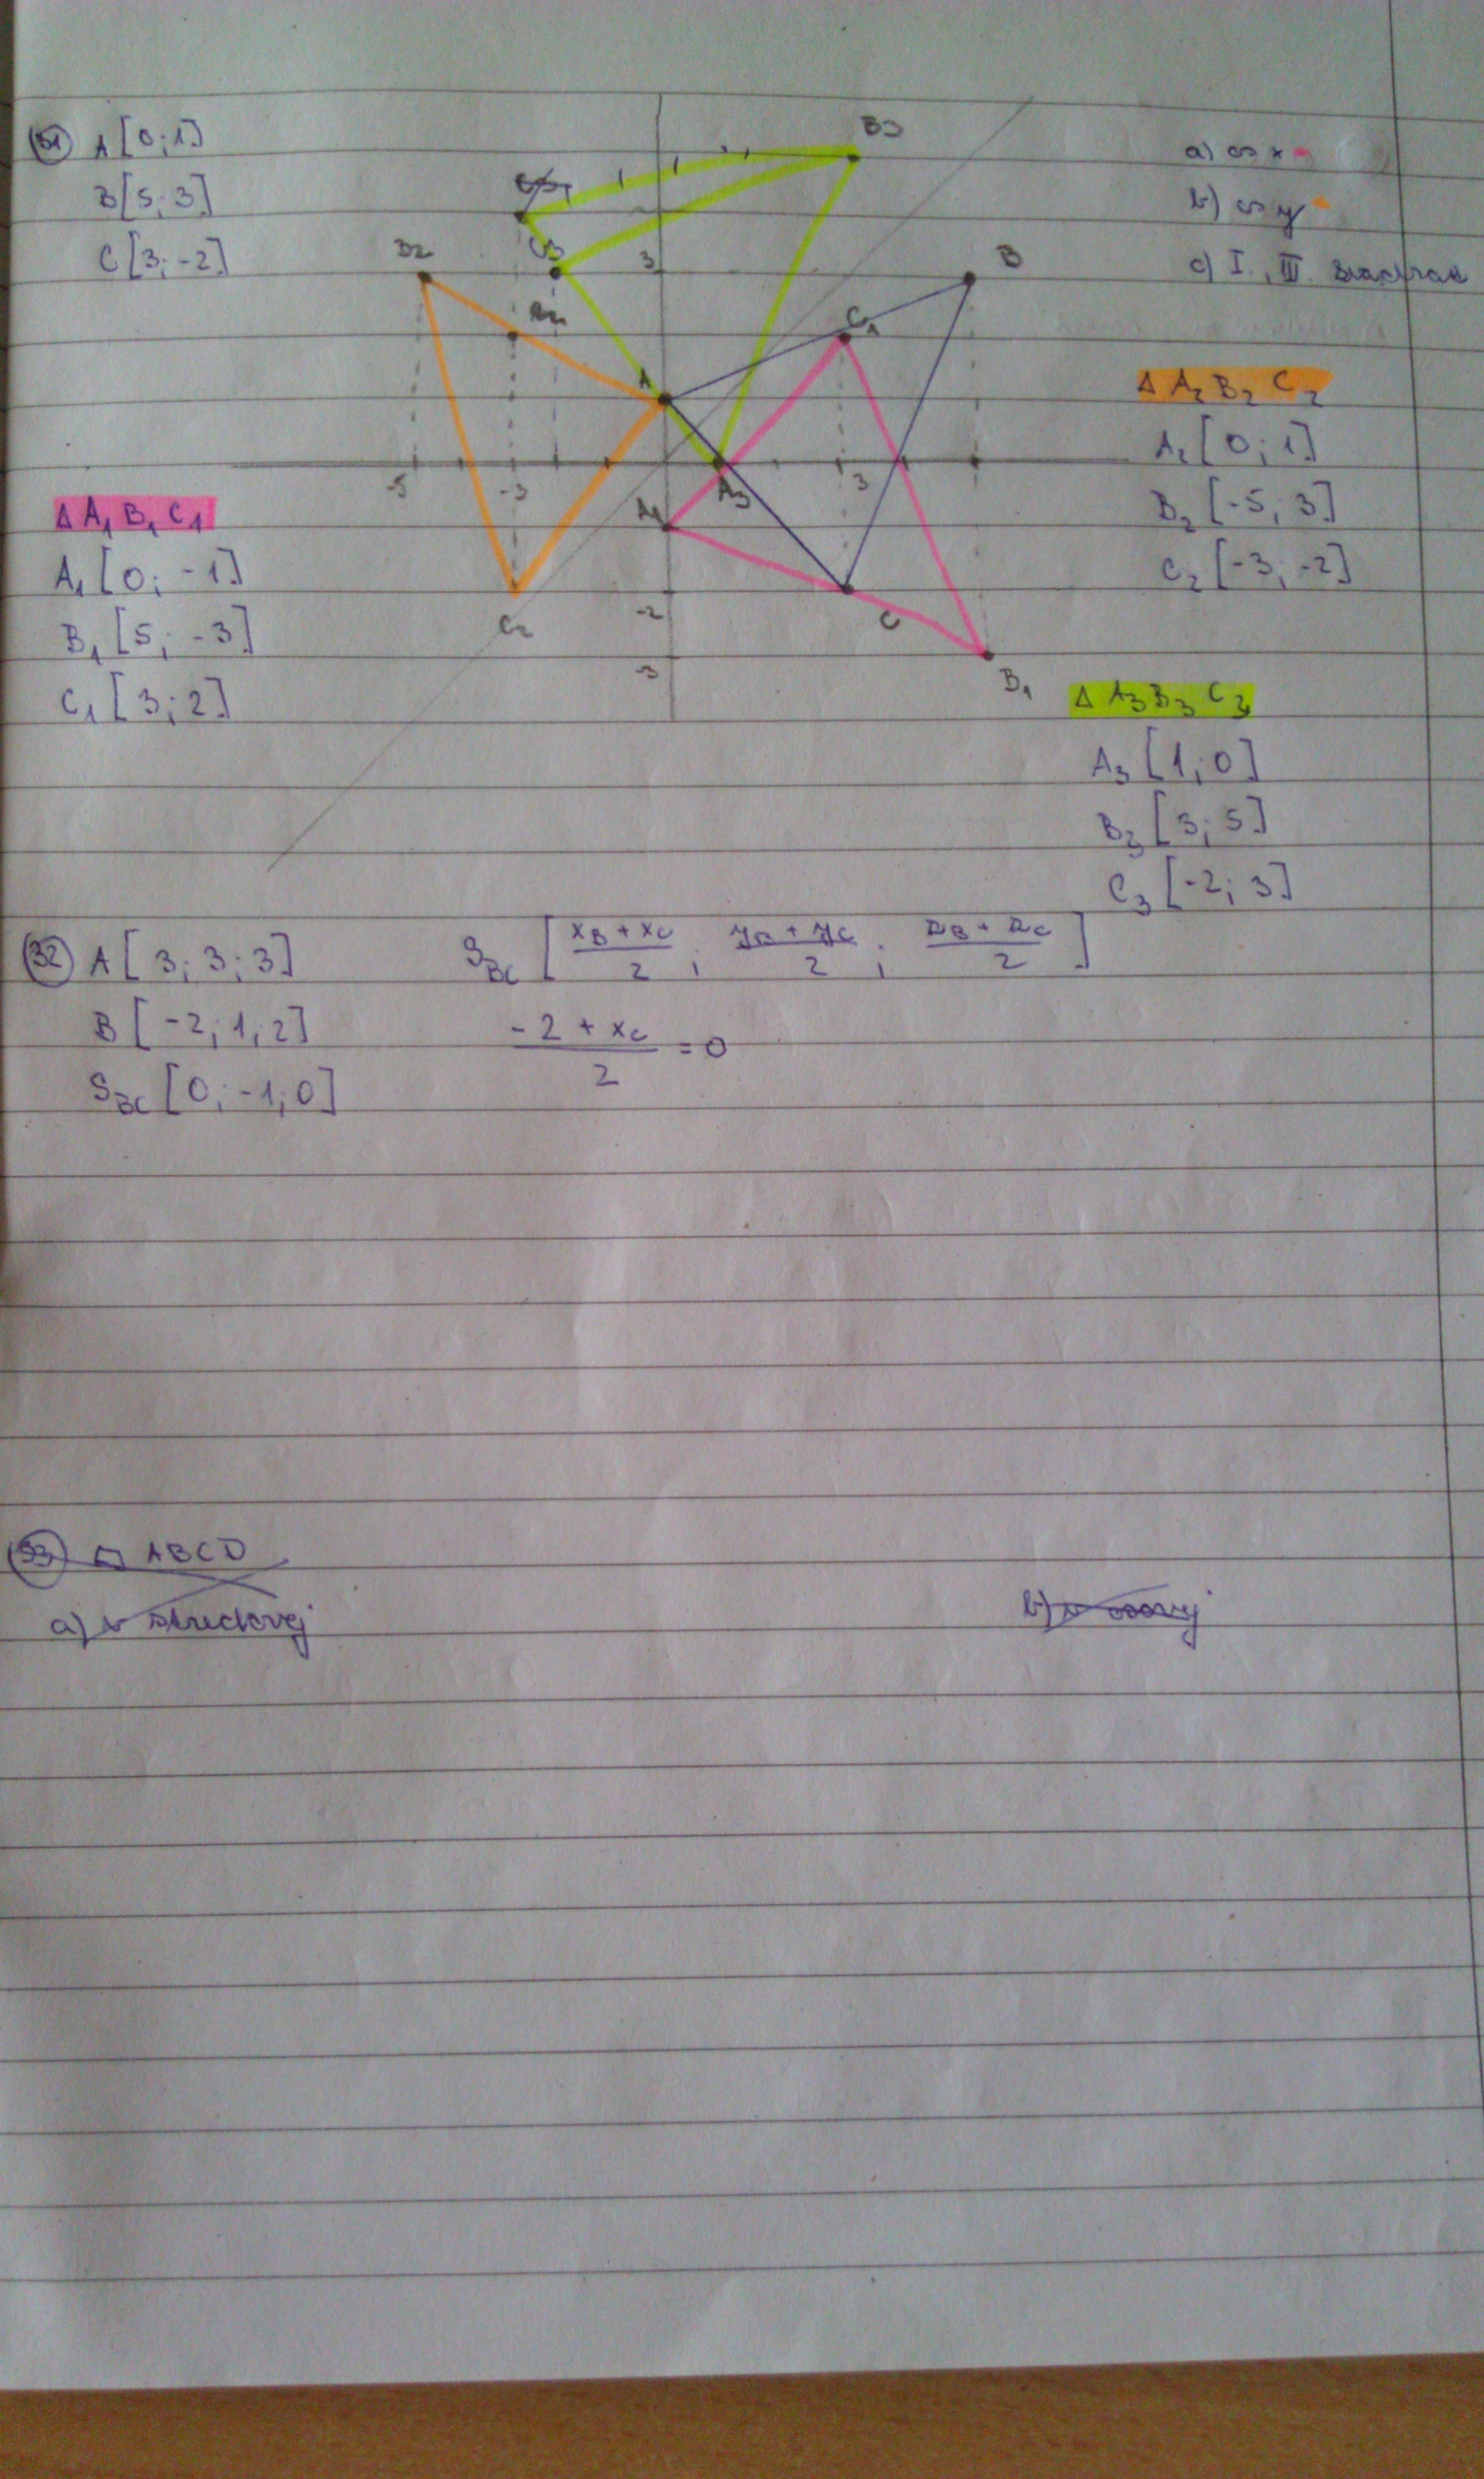 31 A[0;1]
B[5;3]
C[3;-2]
a) os x
b) os y
c) I., III. kvadrant
B3
C3
B2
3
B
C1
A
-5
-3
3
A3
A1
C2
-2
C
-3
B1
Δ A1 B1 C1
A1[0;-1]
B1[5;-3]
C1[3;2]
Δ A2 B2 C2
A2[0;1]
B2[-5;3]
C2[-3;-2]
Δ A3 B3 C3
A3[1;0]
B3[3;5]
C3[-2;3]
32 A[3;3;3]
B[-2;1;2]
SBC[0;-1;0]
SBC [(xB + xC)/2 ; (yB + yC)/2 ; (zB + zC)/2]
(-2 + xC)/2 = 0
33 □ ABCD
a) v středovej
b) v osovej